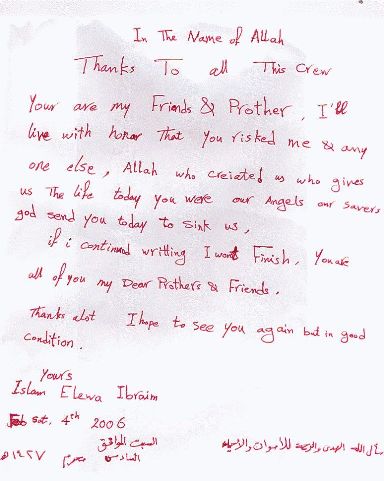 In The Name of Allah
Thanks To all This Crew
Your are my Friends & Prother, I'll
live with honor That you risked me & any
one else, Allah who creiated us who gives
us The life today you were our Angels our savers
god send you today to sink us,
if i continued writting I wont Finish, You are
all of you my Dear Prothers & Friends.
Thanks alot I hope to see you again but in good
condition.
Yours
Islam Elewa Ibraim
Feb sat, 4th 2006
السبت الموافق
السادس محرم ١٤٢٧ه
نسأل الله الهدى والرحمة للأموات والأحياء